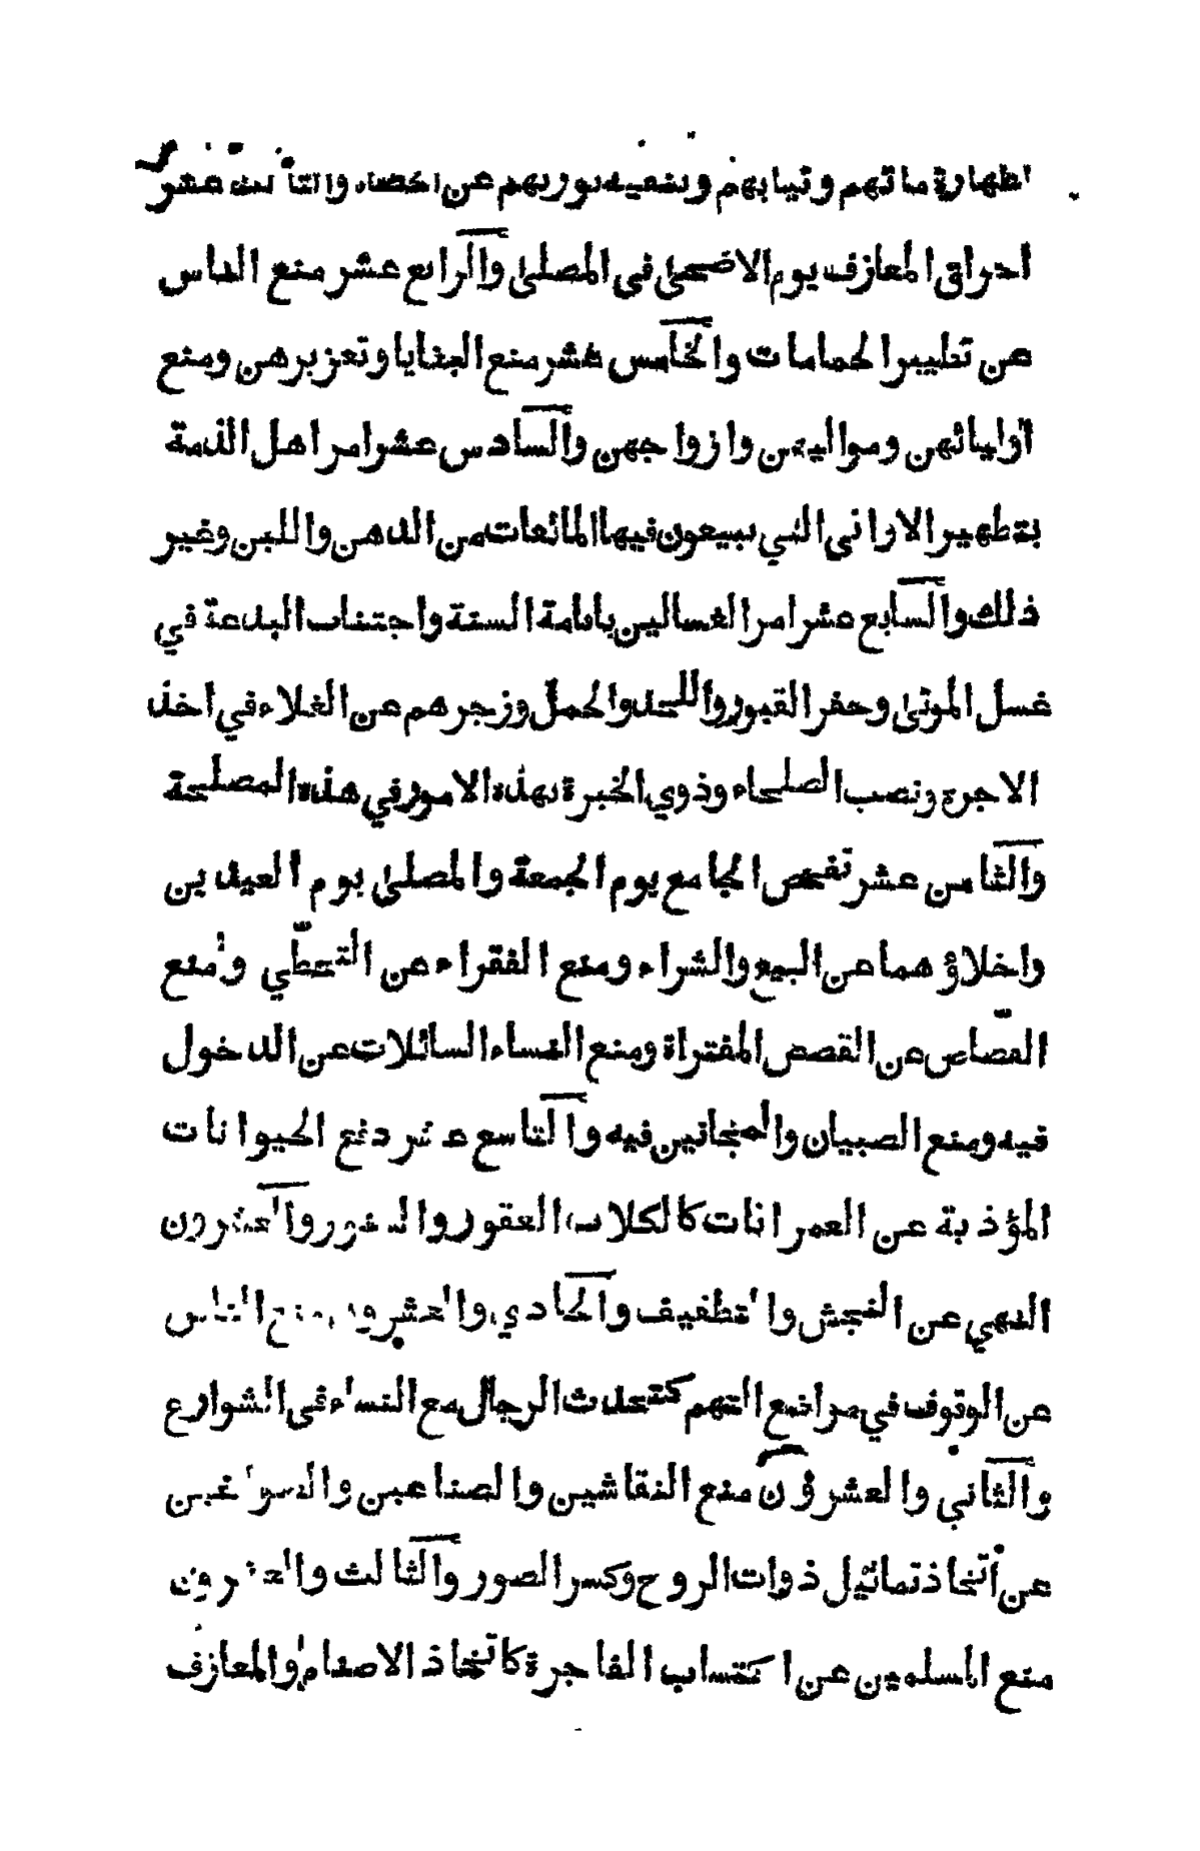 لطهارة مائهم وثيابهم وتنقية بذورهم عن الخصاء والثالث عشر
احراق المعازف يوم الاضحى في المصلى والرابع عشر منع الناس
عن تطيير الحمامات والخامس عشر منع البغايا وتعزيرهن ومنع
اوليائهن ومواليهن وازواجهن والسادس عشر امر اهل الذمة
بتطهير الاواني التي يبيعون فيها المائعات من الدهن واللبن وغير
ذلك والسابع عشر امر الغسالين باقامة السنة واجتناب البدعة في
غسل الموتى وحفر القبور واللحد والحمل وزجرهم عن الغلاء في اخذ
الاجرة ونصب الصلحاء وذوي الخبرة بهذه الامور في هذه المصلحة
والثامن عشر تفحص الجامع يوم الجمعة والمصلى يوم العيدين
واخلاؤهما عن البيع والشراء ومنع الفقراء عن التخطّي ومنع
القصّاص عن القصص المفتراة ومنع النساء السائلات عن الدخول
فيه ومنع الصبيان والمجانين فيه والتاسع عشر دفع الحيوانات
المؤذية عن العمرانات كالكلاب العقور والعشرون
النهي عن النجش والتطفيف والحادي والعشرون منع الناس
عن الوقوف في مواضع التهم كتحدث الرجال مع النساء في الشوارع
والثاني والعشرون منع النقاشين والصناعين والصواغين
عن اتخاذ تماثيل ذوات الروح وكسر الصور والثالث والعشرون
منع المسلمين عن اكتساب الفاجرة كاتخاذ الاصنام والمعازف